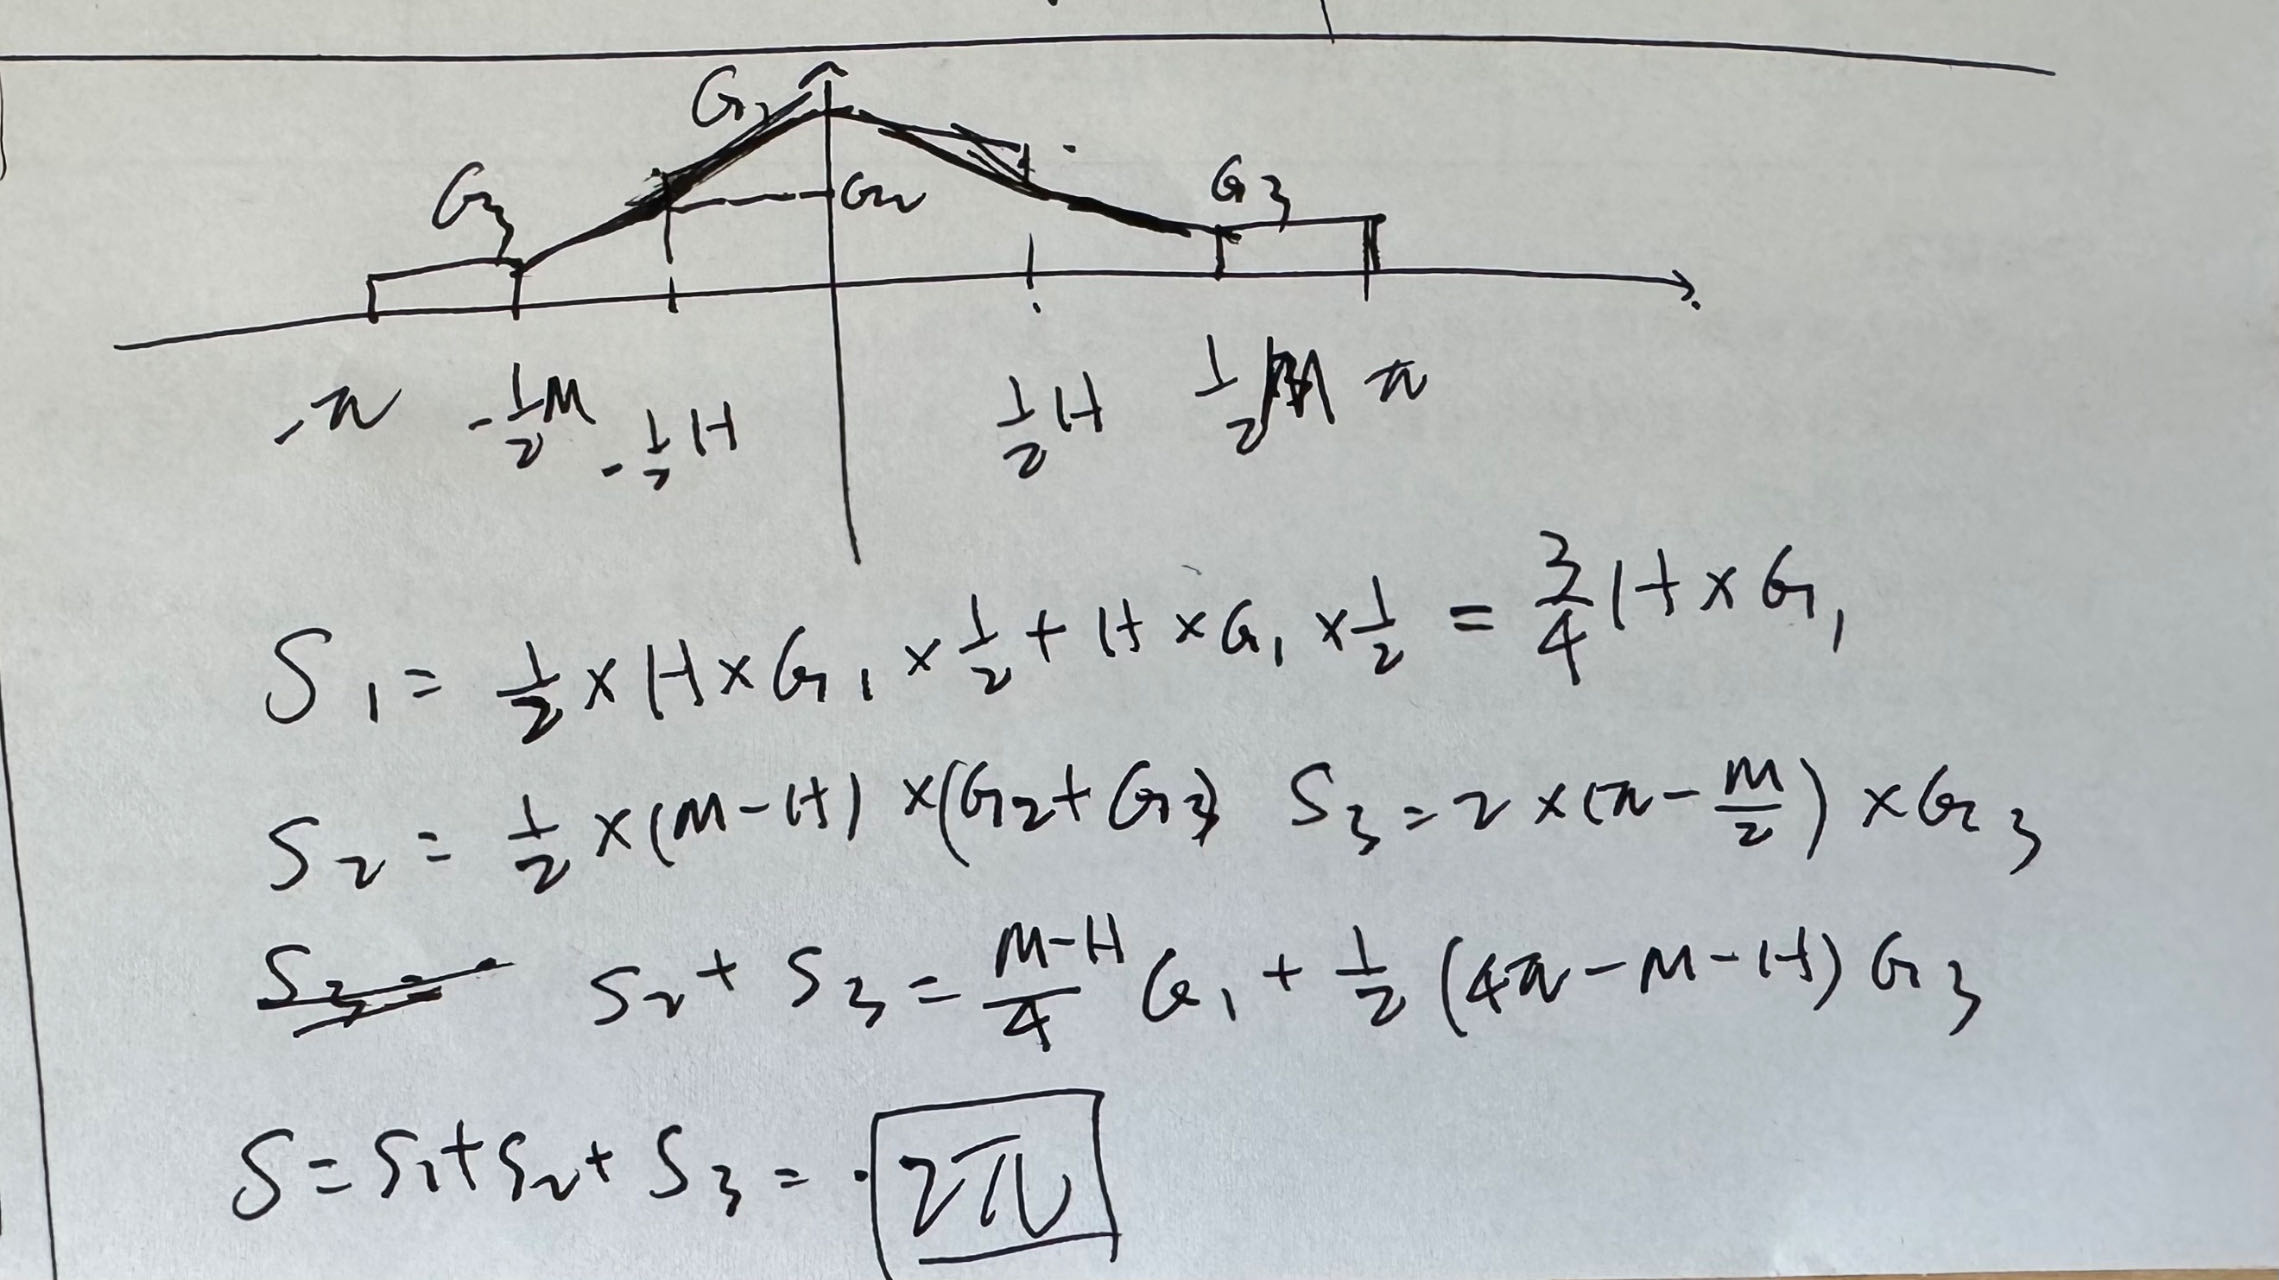 G₁
G₃ G₂ G₃
-π -½M -½H ½H ½M π
S₁ = ½ × H × G₁ × ½ + H × G₁ × ½ = ¾ H × G₁
S₂ = ½ × (M-H) × (G₂ + G₃) S₃ = 2 × (π - M/2) × G₃
S₃ =
S₂ + S₃ = (M-H)/4 G₁ + ½ (4π - M - H) G₃
S = S₁ + S₂ + S₃ = 2π